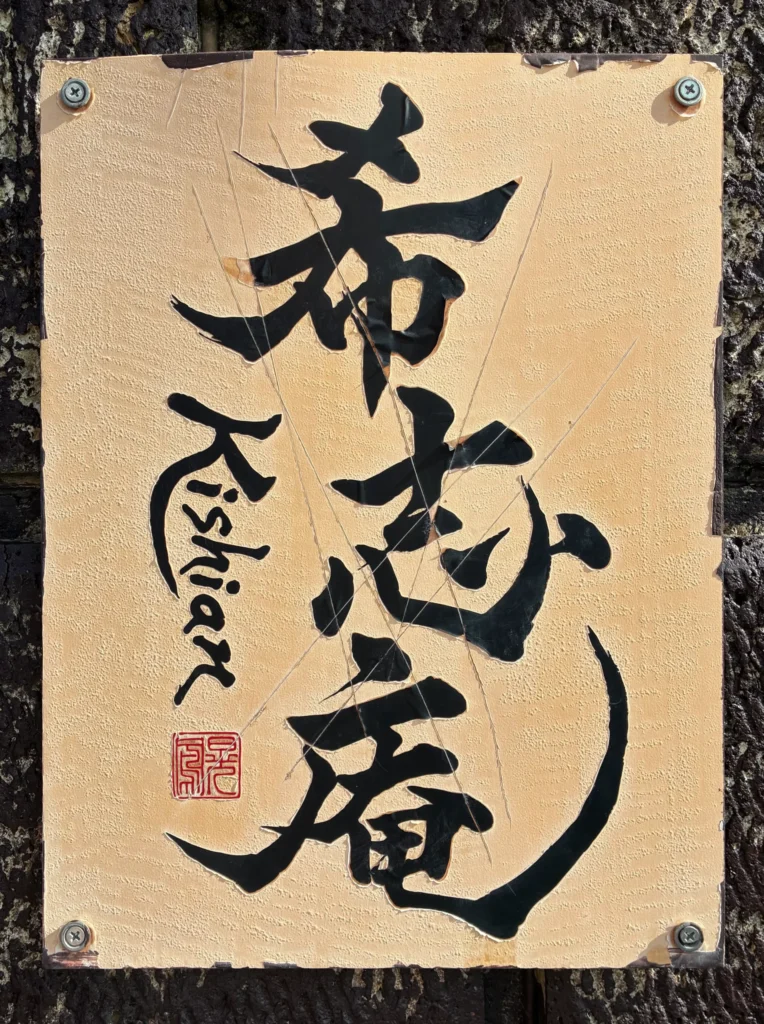 希志庵
Kishian